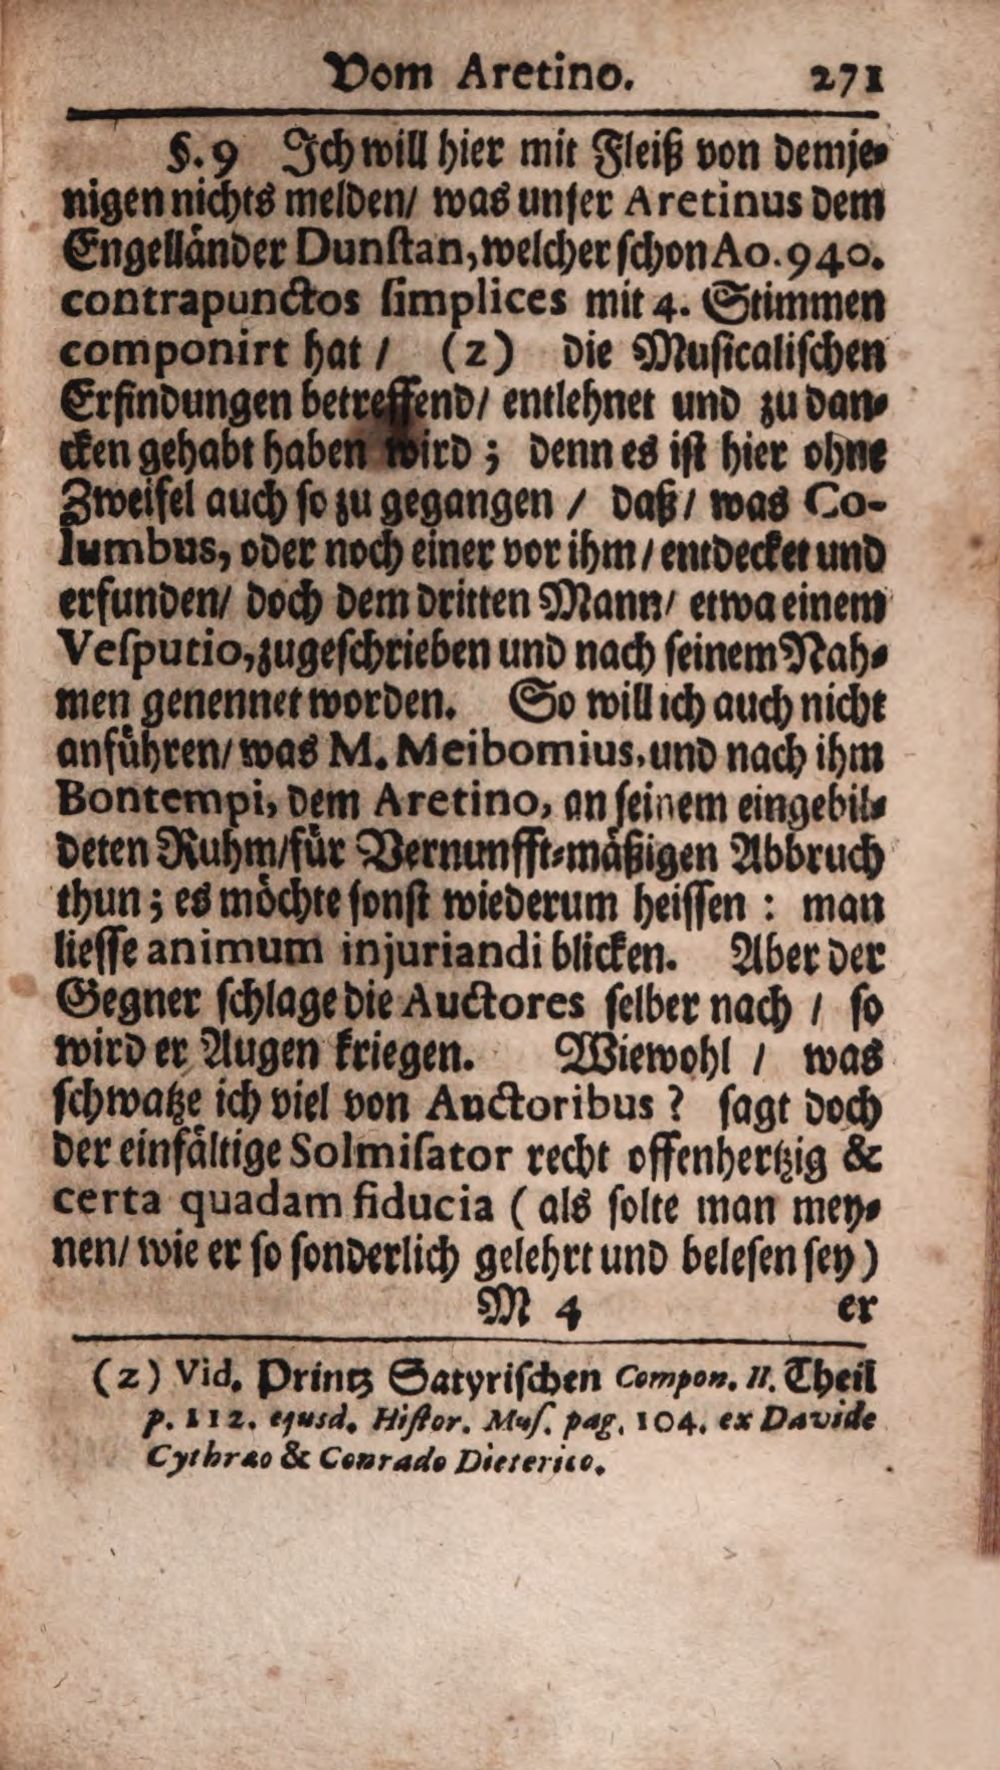 Vom Aretino. 271
§. 9 Ich will hier mit Fleiß von demje-
nigen nichts melden/ was unser Aretinus dem
Engelländer Dunstan, welcher schon Ao. 940.
contrapunctos simplices mit 4. Stimmen
componirt hat / (z) die Musicalischen
Erfindungen betreffend/ entlehnet und zu dan-
cken gehabt haben wird; denn es ist hier ohne
Zweifel auch so zu gegangen / daß/ was Co-
lumbus, oder noch einer vor ihm/ entdecket und
erfunden/ doch dem dritten Mann/ etwa einem
Vesputio, zugeschrieben und nach seinem Nah-
men genennet worden. So will ich auch nicht
anführen/ was M. Meibomius, und nach ihm
Bontempi, dem Aretino, an seinem eingebil-
deten Ruhm/ für Vernunfft-mäßigen Abbruch
thun; es möchte sonst wiederum heissen: man
liesse animum injuriandi blicken. Aber der
Gegner schlage die Auctores selber nach / so
wird er Augen kriegen. Wiewohl / was
schwatze ich viel von Auctoribus? sagt doch
der einfältige Solmisator recht offenhertzig &
certa quadam fiducia (als solte man mey-
nen/ wie er so sonderlich gelehrt und belesen sey)
M 4 er
(z) Vid. Printz Satyrischen Compon. II. Theil
p. 112. ejusd. Histor. Mus. pag. 104. ex Davide
Cythræo & Conrado Dieterico.